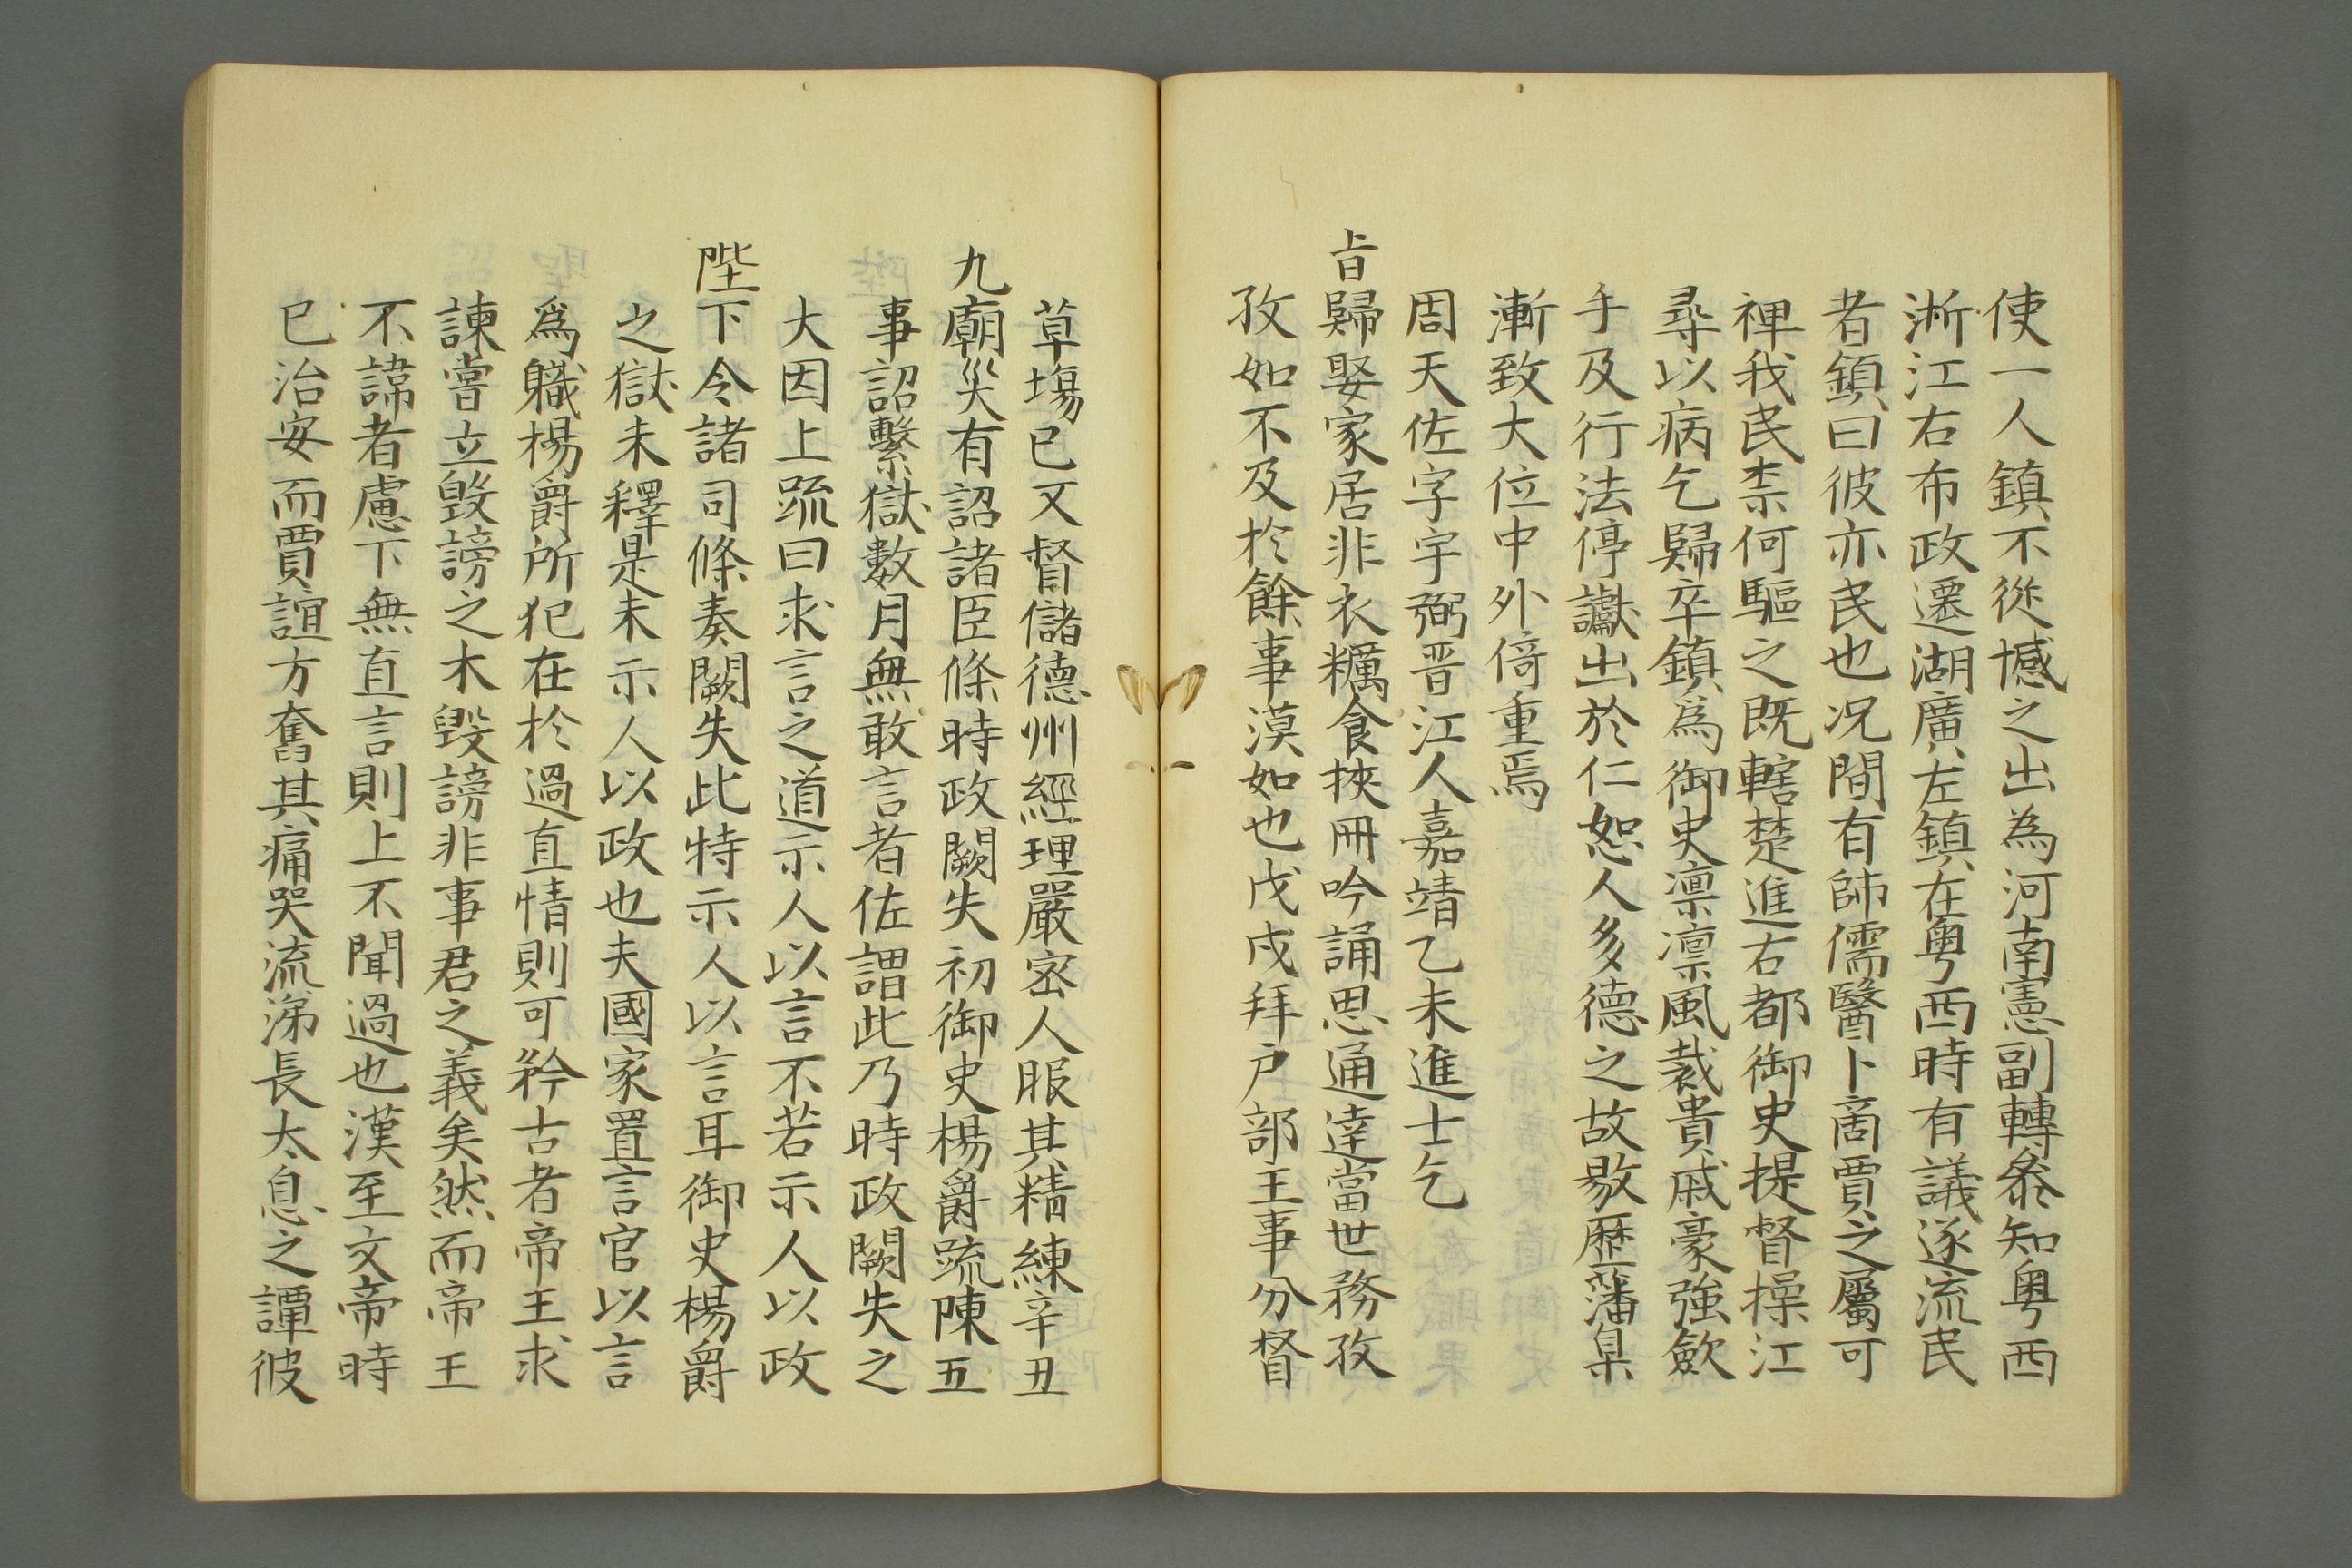 使一人鎮不從憾之出為河南憲副轉叅知粤西
淅江右布政遷湖廣左鎮在粤西時有議逐流民
者鎮曰彼亦民也况間有師儒醫卜商賈之屬可
禆我民柰何驅之既轄楚進右都御史提督操江
尋以病乞歸卒鎮爲御史凛凛風裁貴戚豪強歛
手及行法停讞出於仁恕人多德之故敭歷藩臬
漸致大位中外倚重焉
周天佐字宇弼晋江人嘉靖乙未進士乞
旨歸娶家居非衣糲食挾冊吟誦思通達當世務孜
孜如不及於餘事漠如也戊戌拜户部主事分督
草塲已又督儲德州經理嚴宻人服其精練辛丑
九廟災有詔諸臣條時政闕失初御史楊爵疏陳五
事詔繫獄數月無敢言者佐謂此乃時政闕失之
大因上疏曰求言之道示人以言不若示人以政
陛下令諸司條奏闕失此特示人以言耳御史楊爵
之獄未釋是未示人以政也夫國家置言官以言
爲職楊爵所犯在於過直情則可矜古者帝王求
諫嘗立毁謗之木毁謗非事君之義矣然而帝王
不諱者慮下無直言則上不聞過也漢至文帝時
已治安而賈誼方奮其痛哭流涕長太息之譚彼